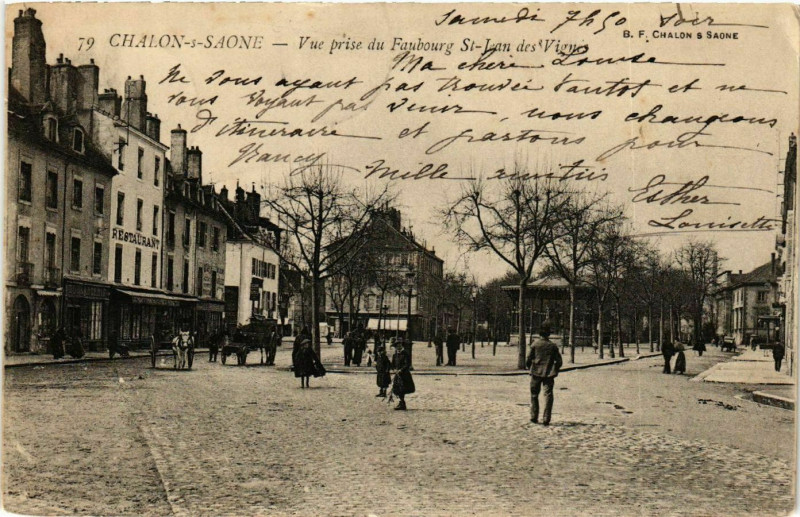 79 CHALON-s-SAONE — Vue prise du Faubourg St-Jean des Vignes
B. F. CHALON S SAONE
Samedi 7h50 Soir
Ma chère Louise
Ne vous ayant pas trouvée tantot et ne
vous voyant pas venir, nous changeons
d'itineraire et partons pour
Nancy Mille amitiés
Esther
Louisette
RESTAURANT